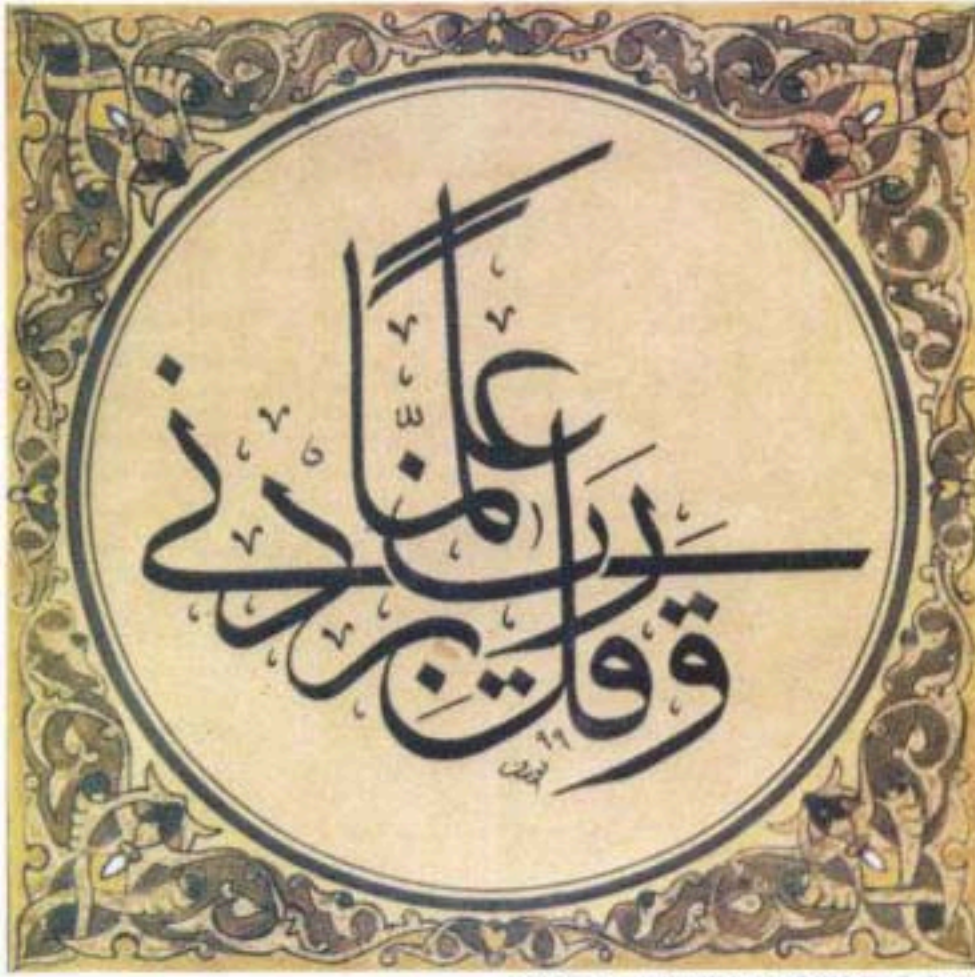 وقل رب زدني علمًا
٩٩